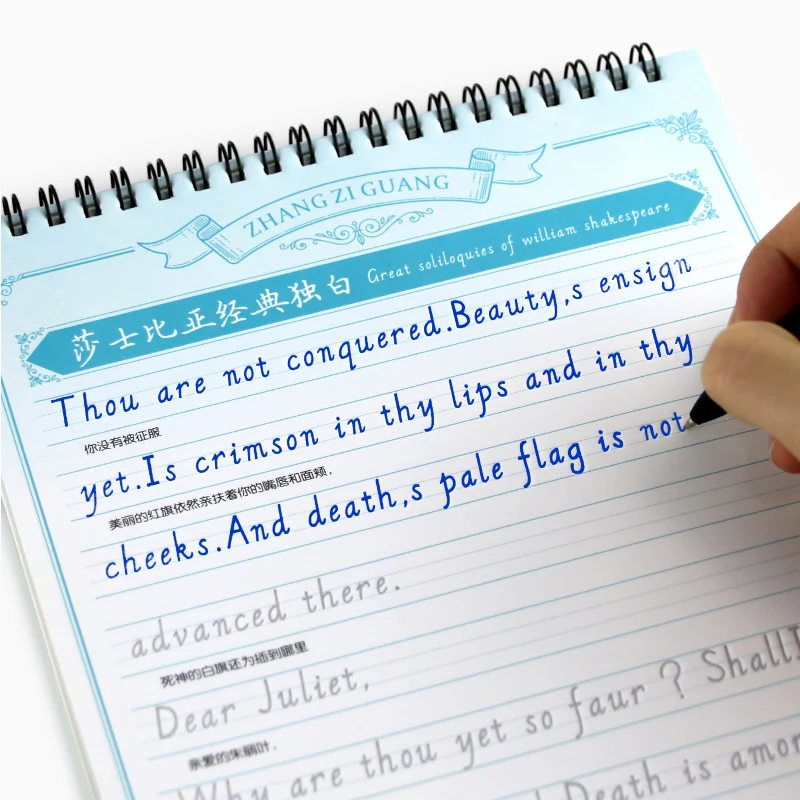 ZHANG ZI GUANG
莎士比亚经典独白 Great soliloquies of william shakespeare
Thou are not conquered.Beauty,s ensign
你没有被征服
yet.Is crimson in thy lips and in thy
美丽的红旗依然亲扶着你的嘴唇和面颊,
cheeks.And death,s pale flag is not
advanced there.
死神的白旗还为插到哪里
Dear Juliet,
亲爱的朱丽叶,
Why are thou yet so faur ? ShallI
Death is amor